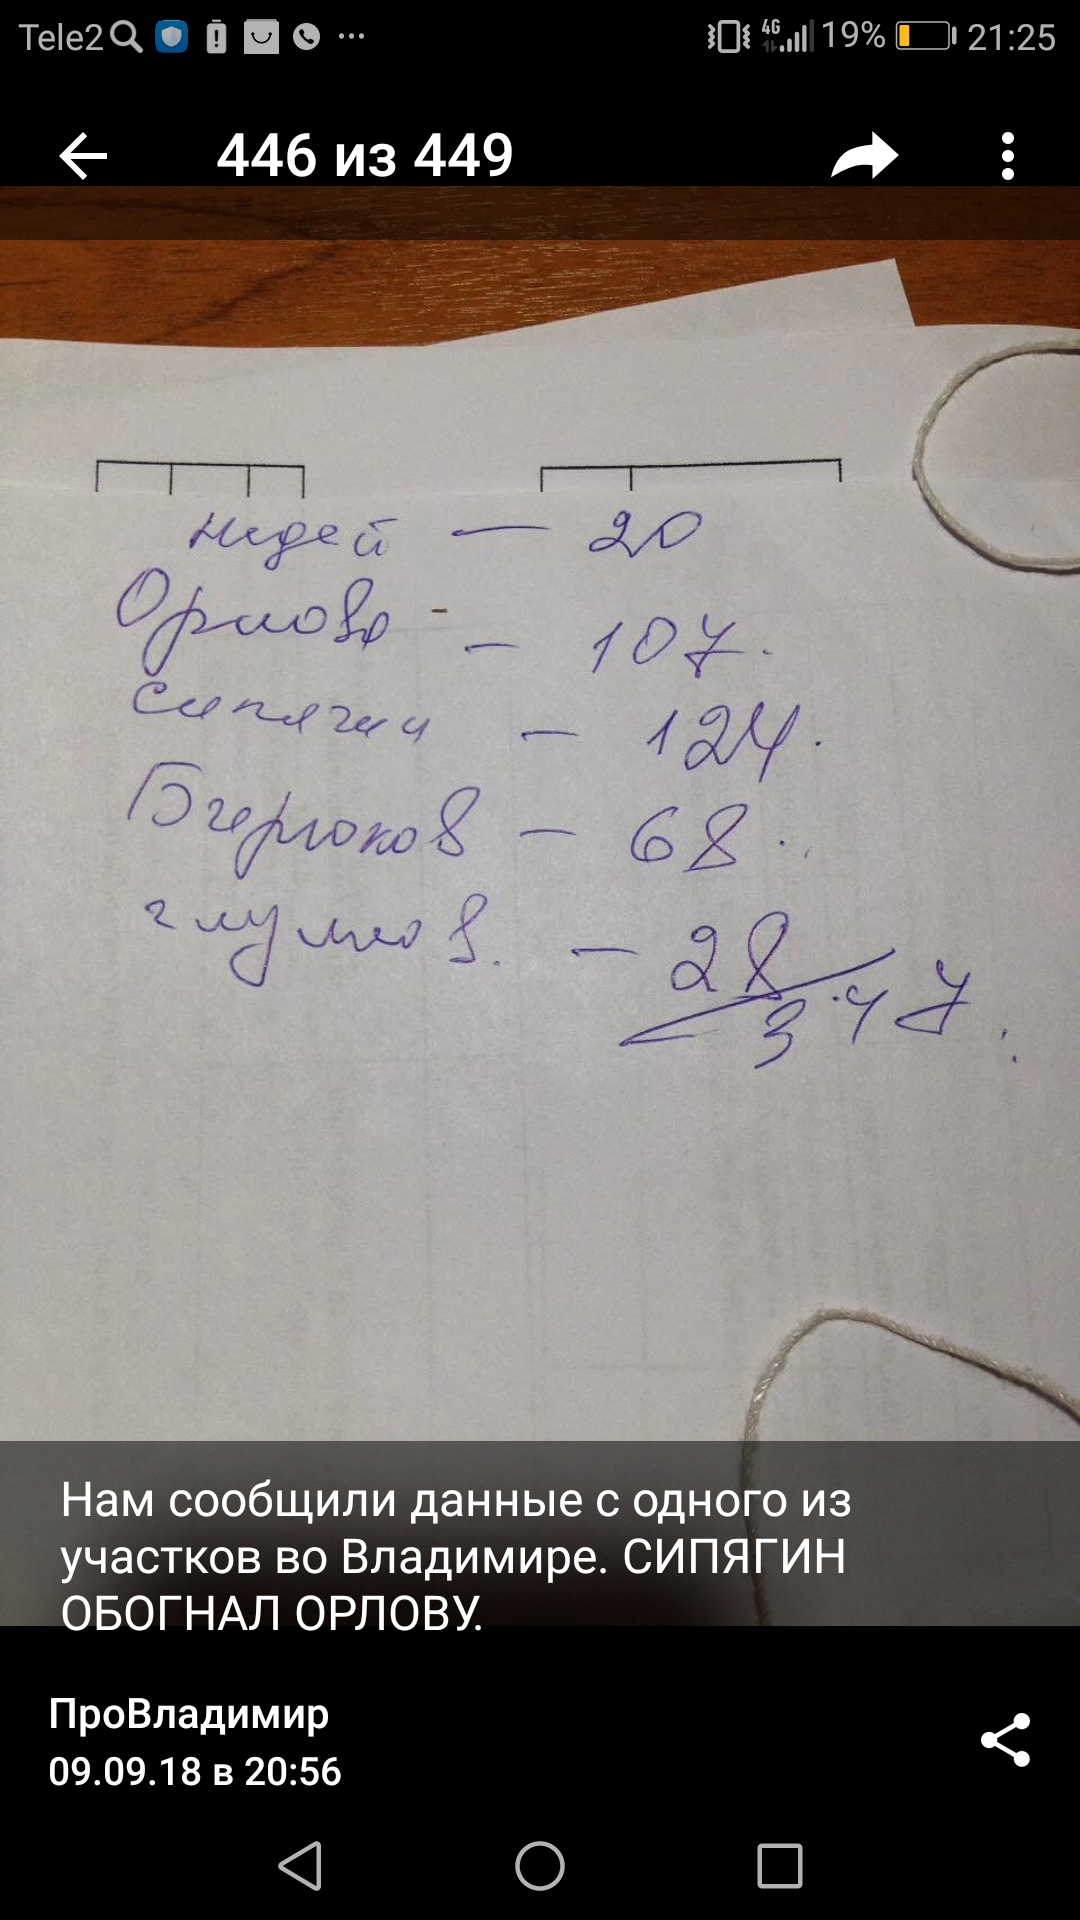 Tele2
4G
19%
21:25
446 из 449
недей — 20
Орлова - — 107.
Сипягин — 124.
Бирюков — 68.
глумов. — 28
347.
Нам сообщили данные с одного из
участков во Владимире. СИПЯГИН
ОБОГНАЛ ОРЛОВУ.
ПроВладимир
09.09.18 в 20:56